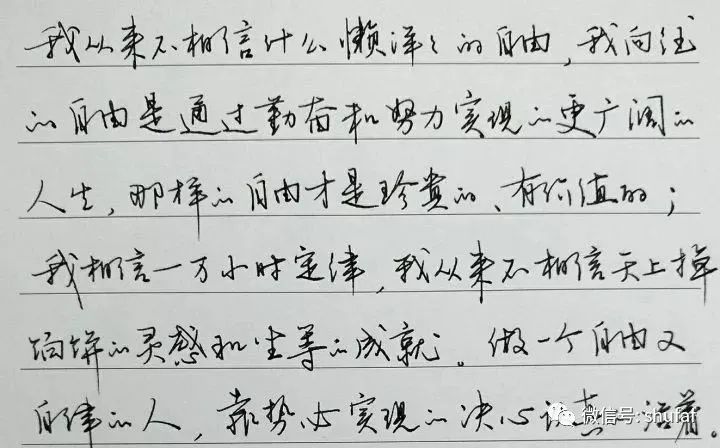 我从来不相信什么懒洋洋的自由，我向往
的自由是通过勤奋和努力实现的更广阔的
人生，那样的自由才是珍贵的、有价值的；
我相信一万小时定律，我从来不相信天上掉
馅饼的灵感和坐等的成就。做一个自由又
自律的人，靠势必实现的决心认真的活着。
微信号: shufaf